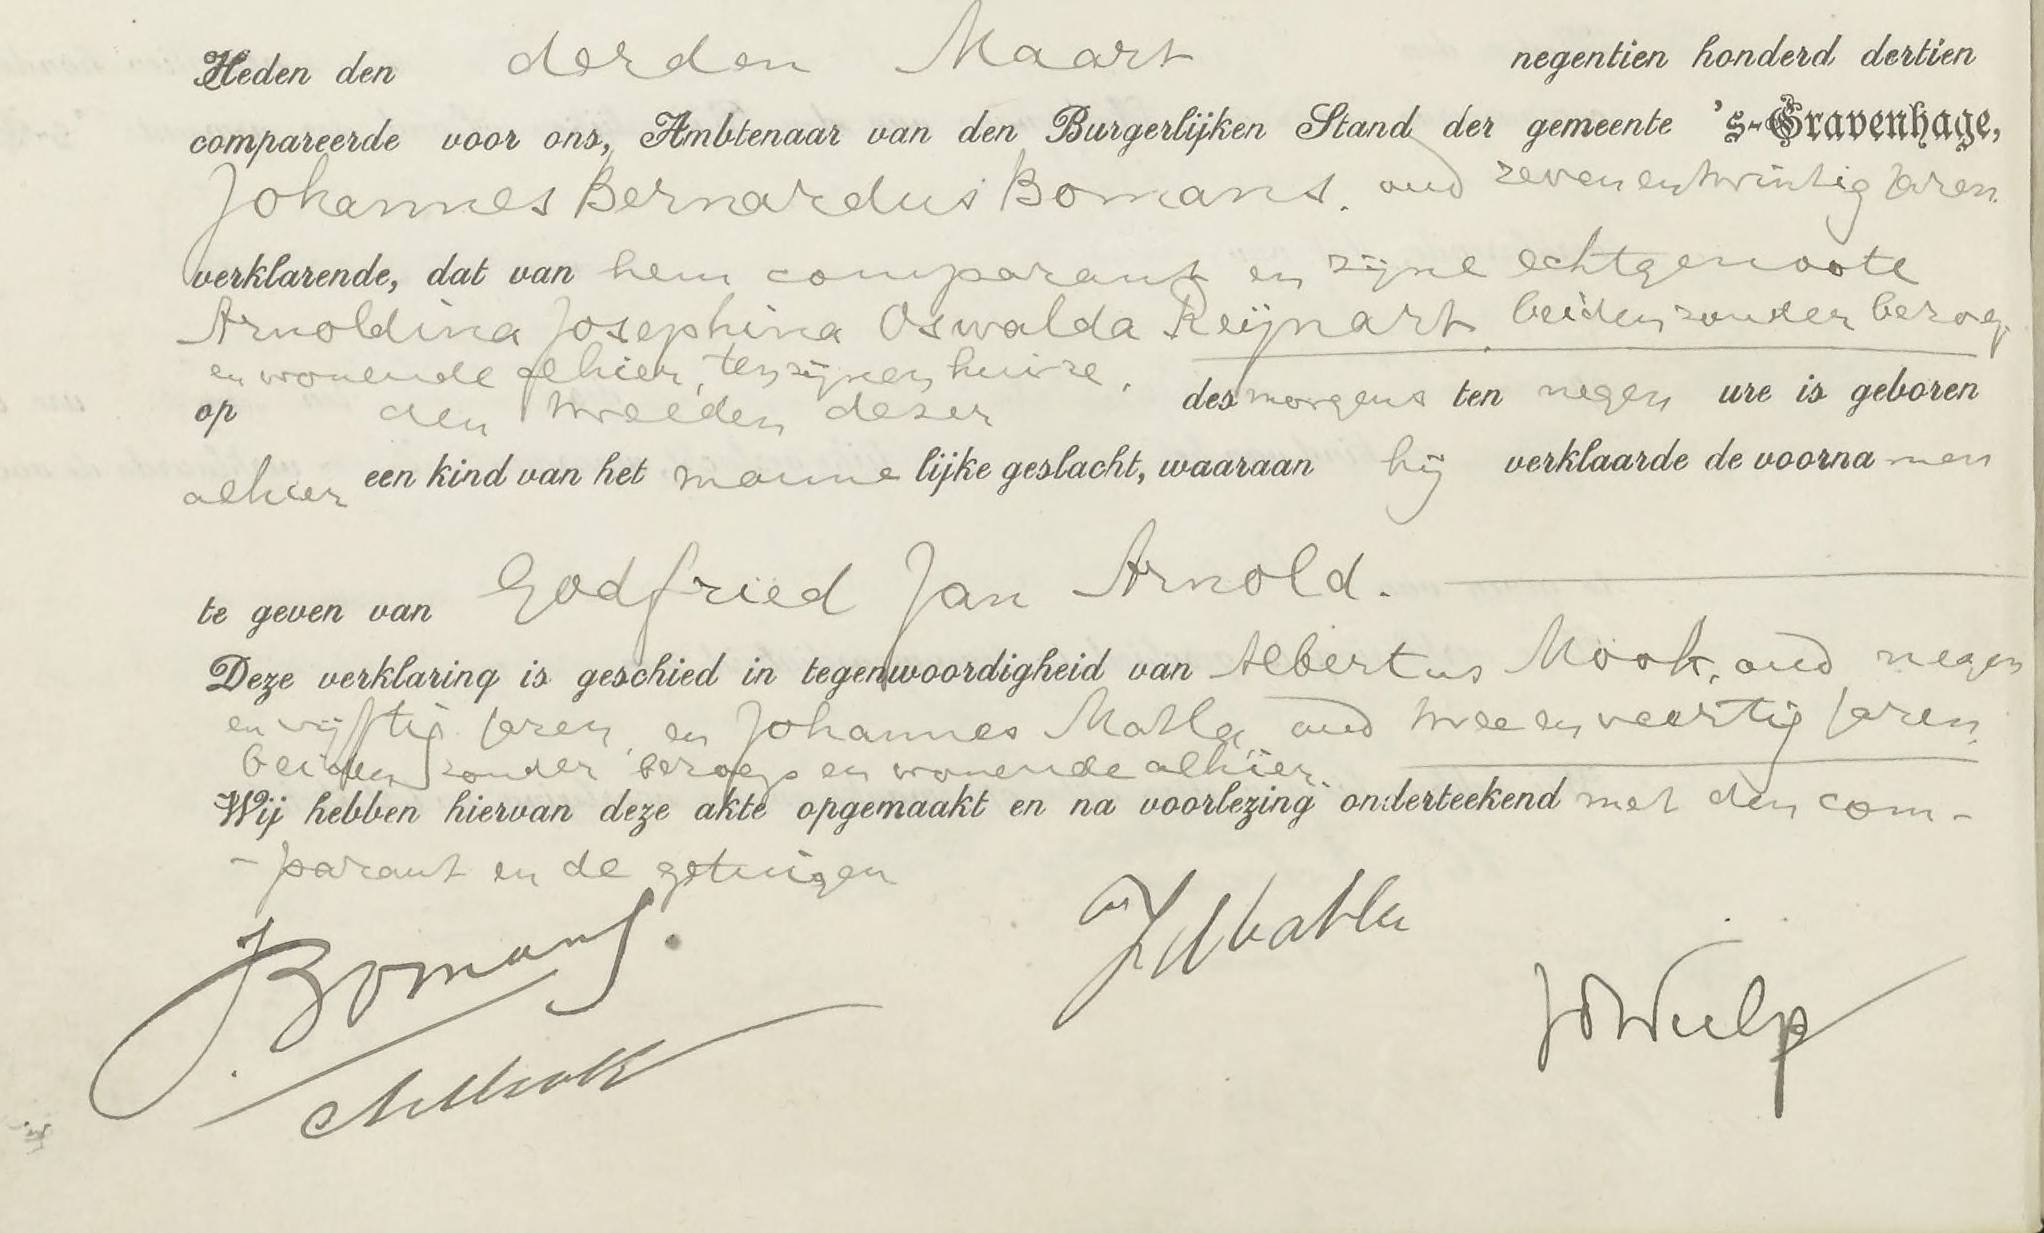 Heden den derden Maart negentien honderd dertien
compareerde voor ons, Ambtenaar van den Burgerlijken Stand der gemeente 's-Gravenhage,
Johannes Bernardus Bomans. oud zevenentwintig jaren.
verklarende, dat van hem comparant en zijne echtgenoote
Arnoldina Josephina Oswalda Reijnart. beiden zonder beroep
en wonende alhier, ten zijnen huize,
op den tweeden dezer des morgens ten negen ure is geboren
alhier een kind van het manne lijke geslacht, waaraan hij verklaarde de voorna men
te geven van Godfried Jan Arnold.
Deze verklaring is geschied in tegenwoordigheid van Albertus Mook, oud negen
en vijftig jaren, en Johannes Matla, oud twee en veertig jaren,
beiden zonder beroep en wonende alhier.
Wij hebben hiervan deze akte opgemaakt en na voorlezing onderteekend met den com-
-parant en de getuigen
JBomans.
JMatla
AMook
Wulp